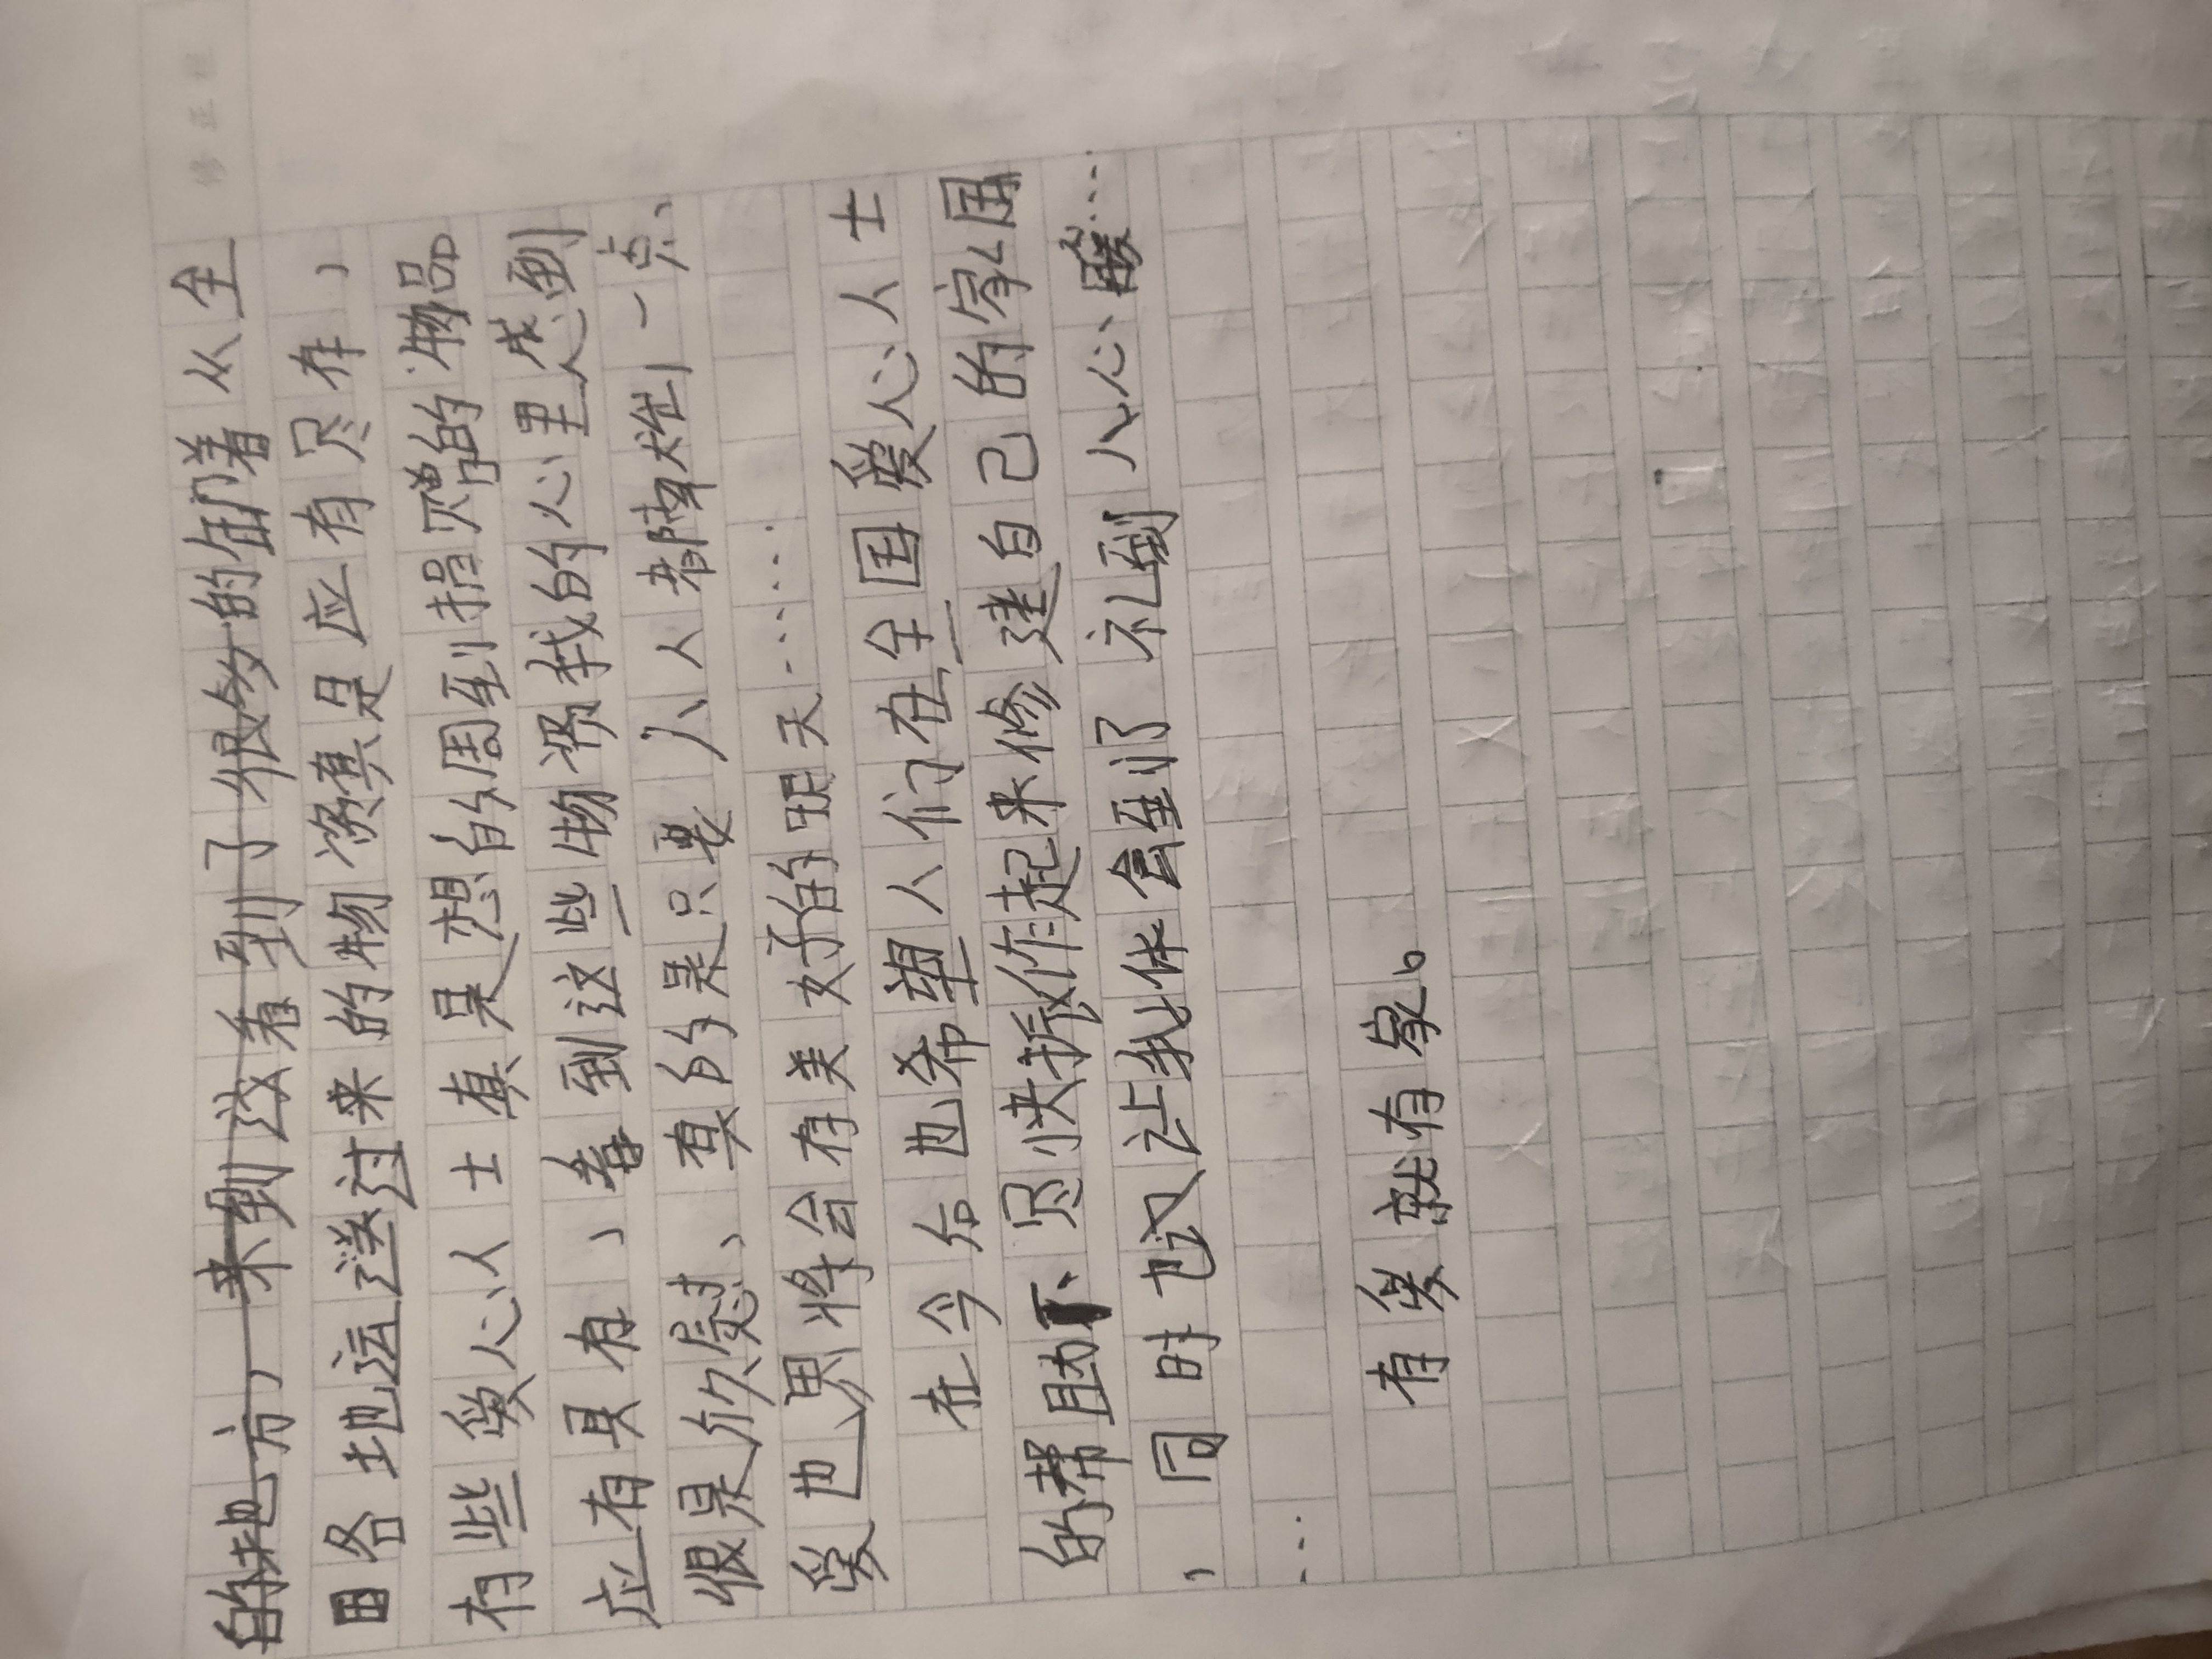 修 正 栏
的地方，来到这看到了很多的车们着从全
国各地运送过来的物资真是应有尽有，
有些爱心人士真是想的周到捐赠的物品
应有具有，看到这些物资我的心里感到
很是欣慰，真的是只要人人都献出一点
爱也界将会有美好的明天……
在今后也希望人们在全国爱心人士
的帮助下尽快振作起来修建自己的家园
，同时也又让我体会到了礼到人心暖…
…
有爱就有家。